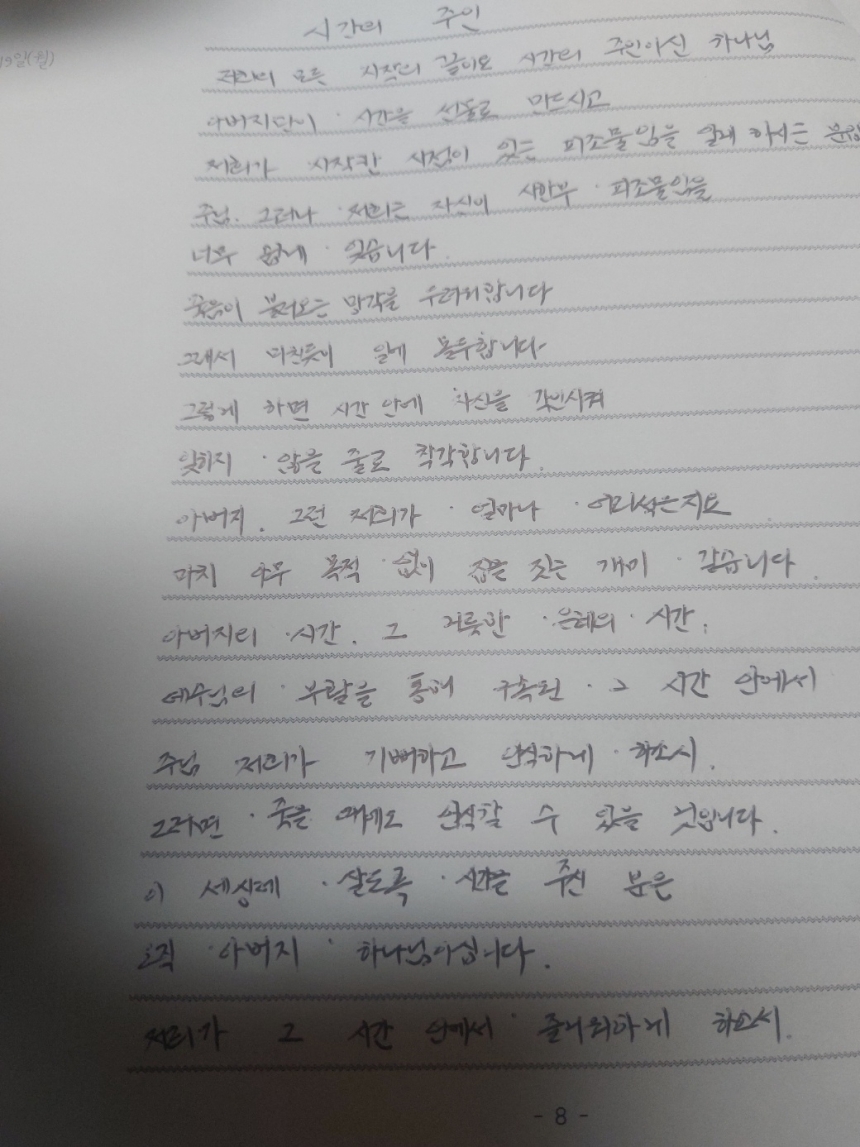 19일(월)
시간의 주인
저희의 모든 시작의 끝이요 시간의 주인이신 하나님
아버지만이 시간을 선물로 만드시고
저희가 시작한 시점이 있는 피조물임을 알게 하시는 분임
주님. 그러나 저희는 자신이 시한부 피조물임을
너무 쉽게 잊습니다.
죽음이 불러오는 망각을 두려워합니다
그래서 미친듯이 일에 몰두합니다
그렇게 하면 시간 안에 자신을 각인시켜
잊히지 않을 줄로 착각합니다.
아버지. 그런 저희가 얼마나 어리석은지요
마치 아무 목적 없이 집을 짓는 개미 같습니다.
아버지의 시간. 그 거룩한 은혜의 시간.
예수님의 부활을 통해 구속된 그 시간 안에서
주님 저희가 기뻐하고 안식하게 하소서.
그러면 죽을 때에도 안식할 수 있을 것입니다.
이 세상에 살도록 시간을 주신 분은
오직 아버지 하나님이십니다.
저희가 그 시간 안에서 즐거워하게 하소서.
- 8 -